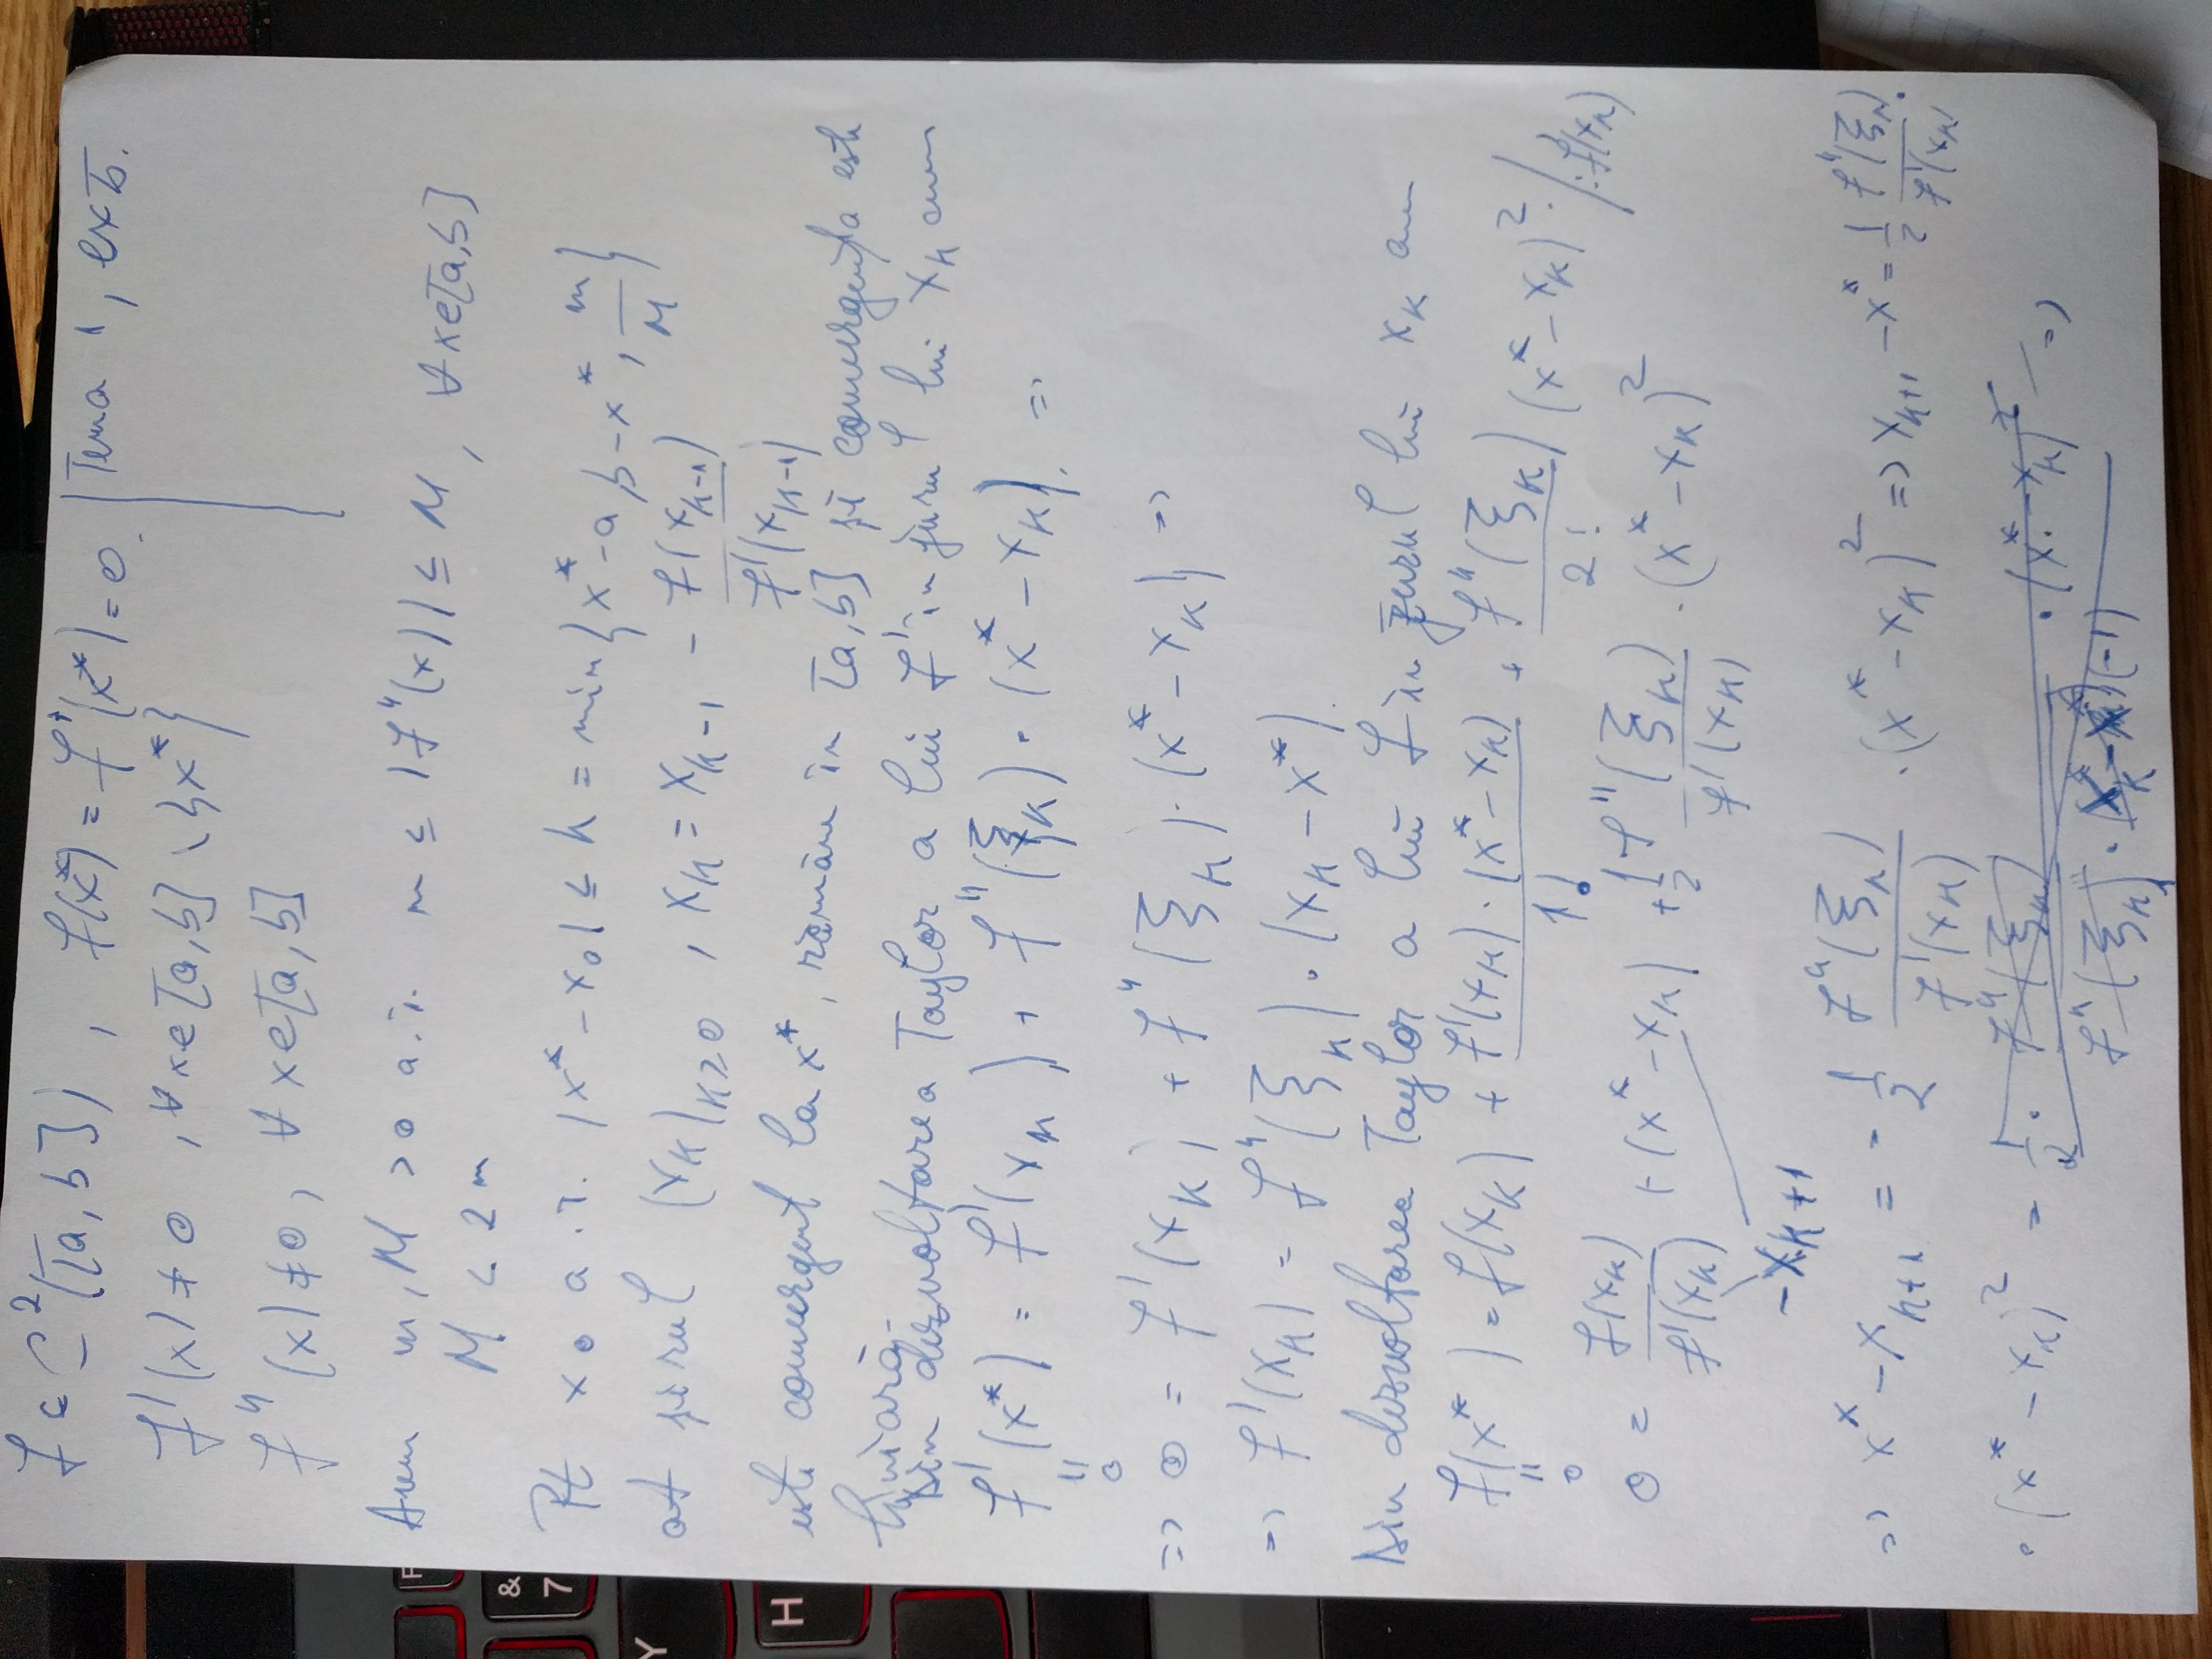 f ∈ C²([a,b]) , f(x*) = f'(x*) = 0. | Tema 1, ex 5.
f'(x) ≠ 0 , ∀ x∈[a,b] \ {x*}
f''(x) ≠ 0, ∀ x∈[a,b]
Avem m, M > 0 a.î. m ≤ |f''(x)| ≤ M , ∀ x∈[a,b]
M < 2m
Pt x0 a.î. |x* - x0| ≤ h = min{x* - a, b - x*, m/M}
at șirul (xk)k≥0 , xk = xk-1 - f(xk-1)/f'(xk-1)
este convergent la x*, rămâne în [a,b] și convergența este
liniară.
Din dezvoltarea Taylor a lui f' în jurul lui xk avem
f'(x*) = f'(xk) + f''(ξk)·(x* - xk). =>
"
0
=> 0 = f'(xk) + f''(ξk)·(x* - xk) =>
=> f'(xk) = f''(ξk)·(xk - x*)
Din dezvoltarea Taylor a lui f în jurul lui xk am
f(x*) = f(xk) + f'(xk)·(x* - xk)/1! + f''(ξk)/2! (x* - xk)². /:f'(xk)
"
0
0 = f(xk)/f'(xk) + (x* - xk) + 1/2 f''(ξk)/f'(xk) ·(x* - xk)²
-xk+1
=> x* - xk+1 = - 1/2 f''(ξk)/f'(xk) ·(x* - xk)² => xk+1 - x* = 1/2 f''(ξk)/f'(xk) ·
·(x* - xk)² = 1/2 · f''(ξk) ·(x* - xk)² =>
f''(ξk)·(xk - x*)(-1)